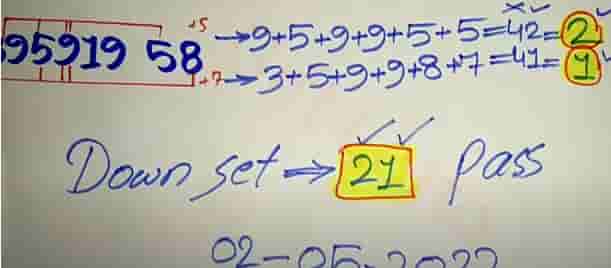 +5
95919 58 →9+5+9+9+5+5=42=2
+7→3+5+9+9+8+7=41=1
Down set ⇒ 21 pass
02-05-2022